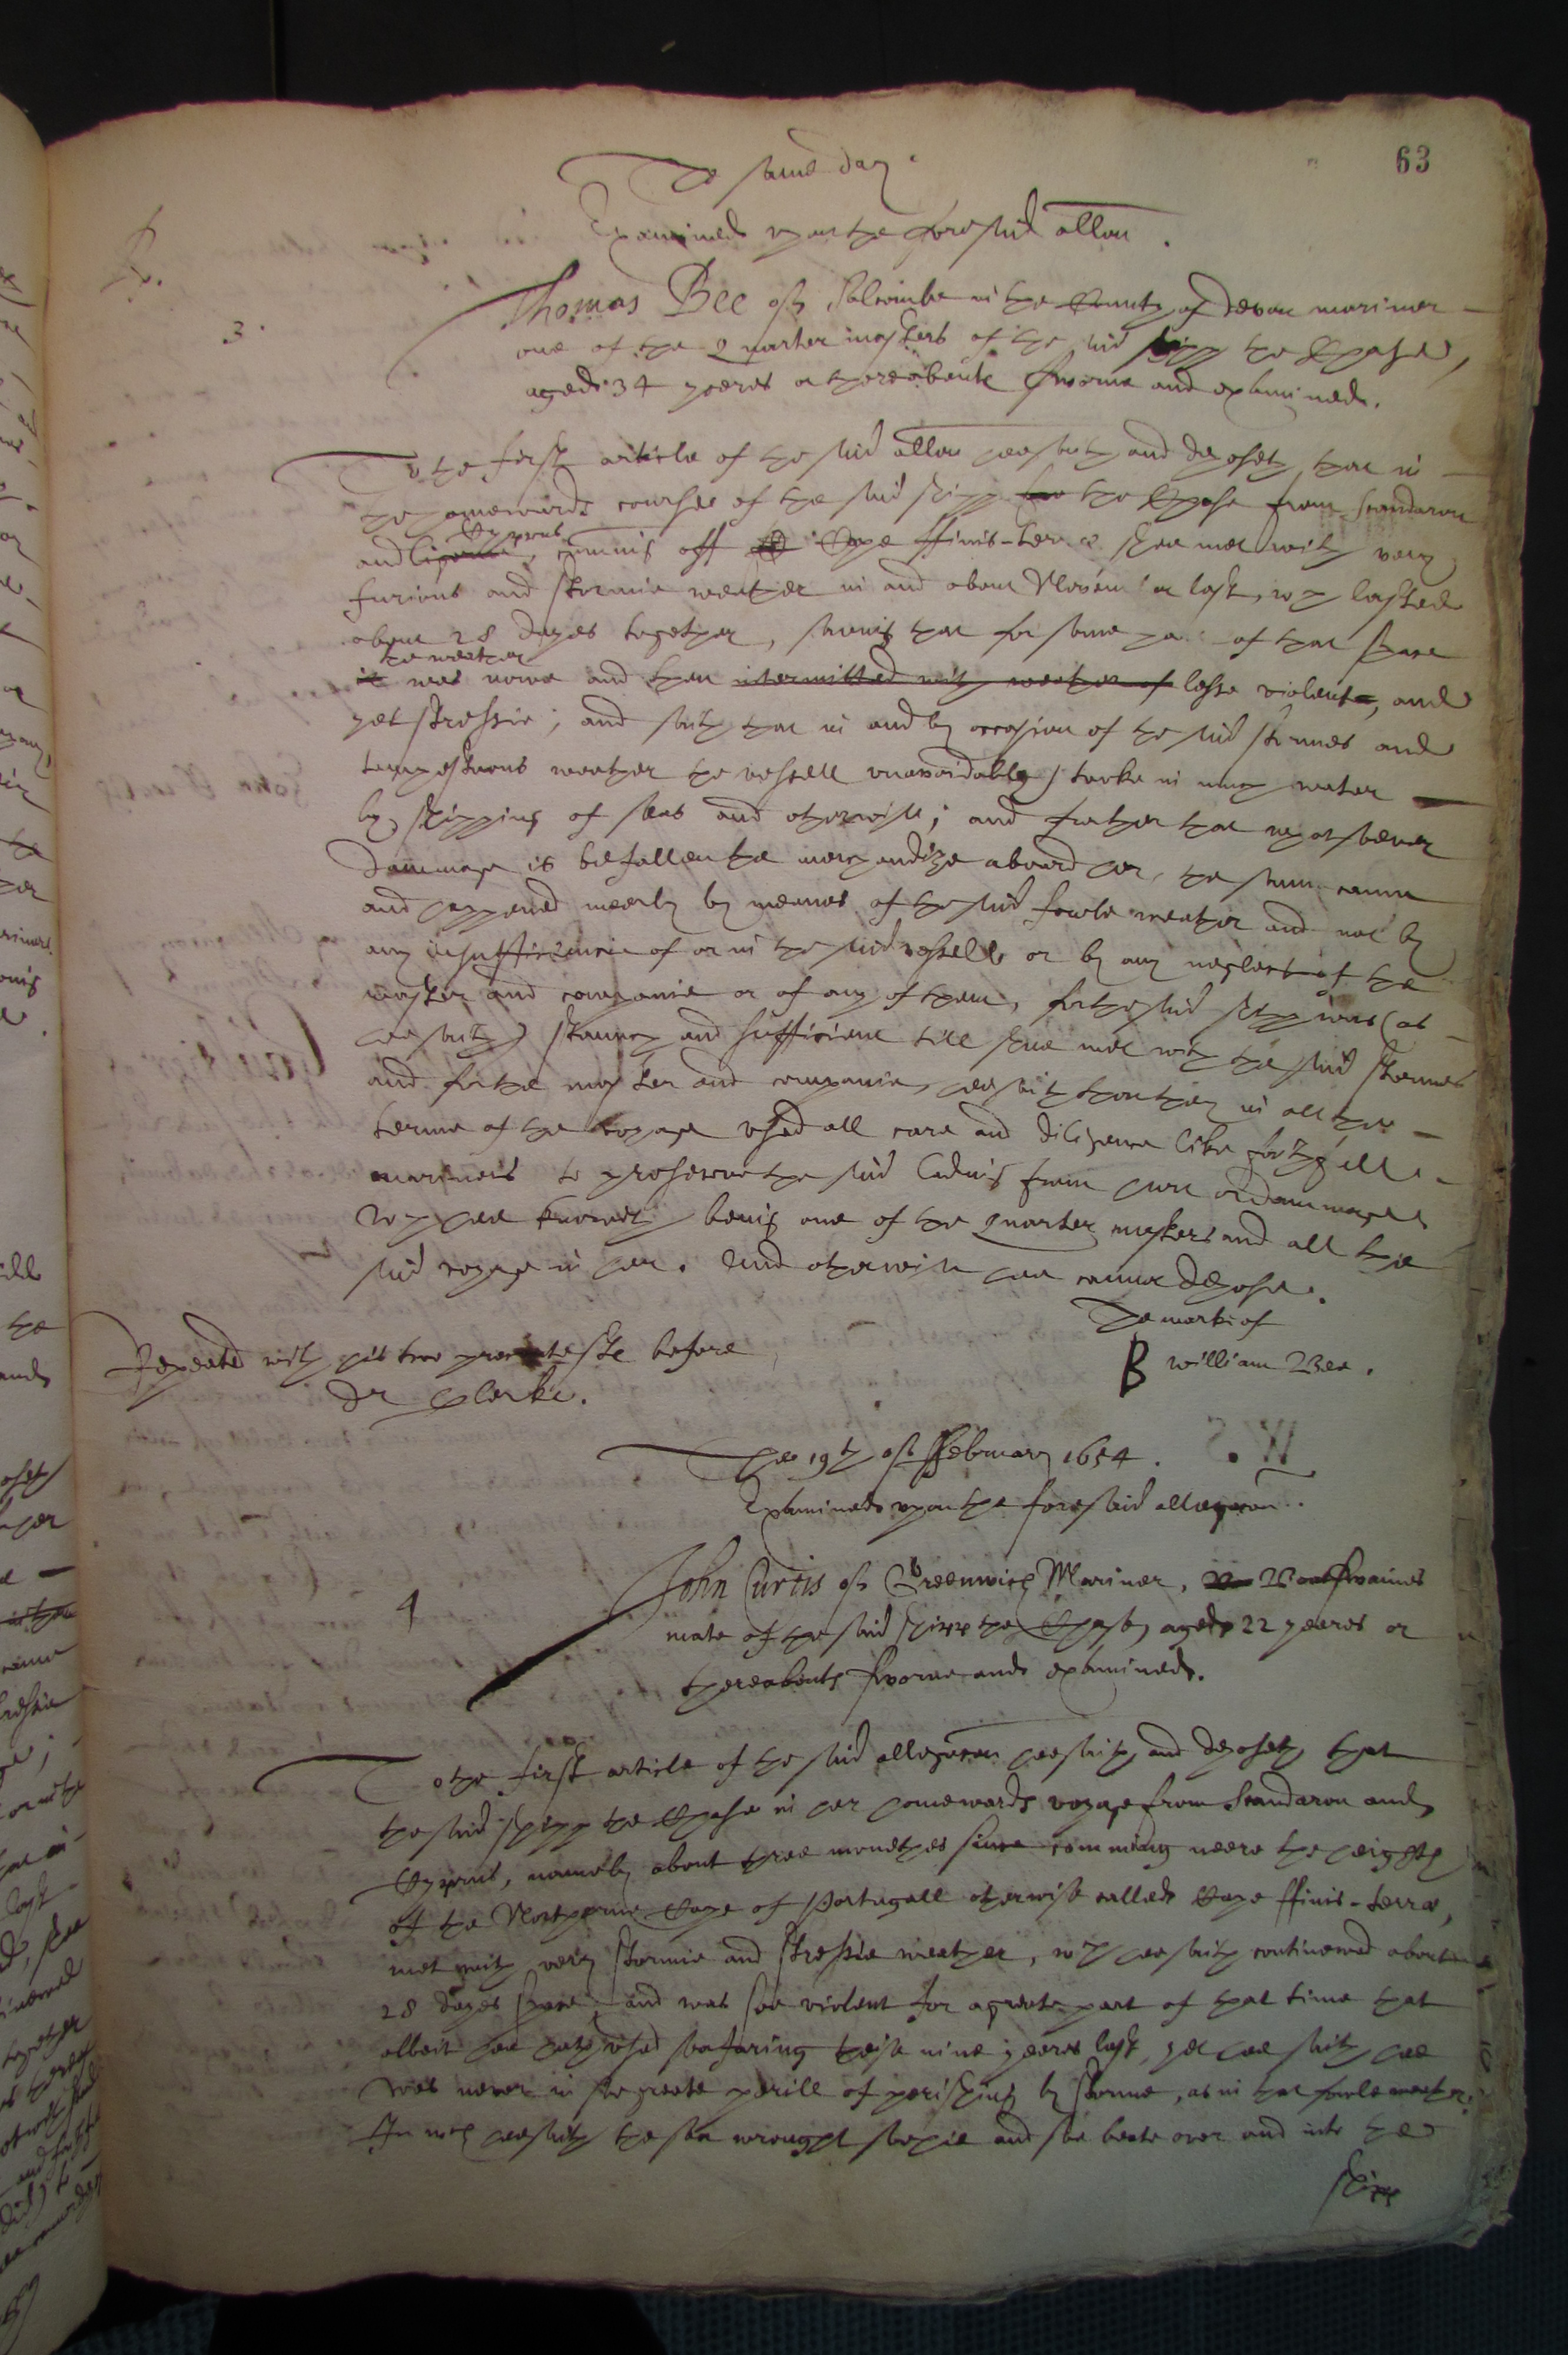 63
The same day.
Examined upon the foresaid allon.
R.
3.
Thomas Bee of Salcombe in the County of Devon mariner
one of the Quarter masters of the said shipp the Chase,
aged 34 yeeres or thereabouts sworne and examined.
To the first article of the said allon hee saith and deposeth that in
the homewards course of the said shipp the Chase from Scandaron
Cyprus
and coming off Cape ffinis-terræ shee met with very
furious and stormie weather in and about November last, wch lasted
about 28 dayes together, saving that for some part of that space
the weather
it was nowe and then intermitted with weather of lesse violent, and
yet stressie; and saith that in and by occasion of the said stormes and
tempestuous weather the vessell unavoidably tooke in much water
by shipping of seas and otherwise; and further that whatsoever
dammage is befallen the merchandize aboard her, the same came
and happened meerly by meanes of the said fowle weather and not by
any insufficiencie of or in the said vessell or by any neglect of the
master and companie or of any of them, for the said shipp was (as
hee saith) staunch and sufficient till shee met with the said stormes
and for the master and companie, hee saith that they in all the
terme of the voyage used all care and diligence like
mariners to preserve the said lading from hurt or dammage
wch hee knoweth being one of the quarter masters and all the
said voyage in her. And otherwise hee cannot depose.
The marke of
B William Bee.
Repeated with his two precontests before
Dr Clerke.
The 19th of ffebruary 1654.
Examined upon the foresaid allegacon.
4
John Curtis of Greenwich Mariner, Boatswaines
mate of the said shipp the Chase, aged 22 yeeres or
thereabouts sworne and examined.
To the first article of the said allegacon hee saith and deposeth that
the said shipp the Chase in her homewards voyage from Scandaron and
Cyprus, namely about three monethes since comming neere the heighth
of the Northerne Cape of Portugall otherwise called Cape ffinis-terræ,
met with very stormie and stressie weather, wch hee saith continewed about
28 dayes space and was soe violent for a greate part of that time that
albeit hee hath used seafaring theise nine yeeres last, yet hee saith hee
was never in soe greate perill of perishing by storme, as in that fowle weather.
In wch hee saith the sea wrought so high and soe beate over and into the
shipp